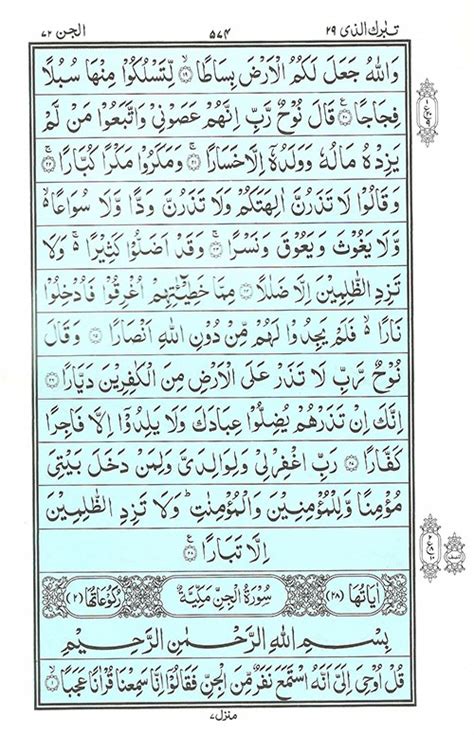 تبٰرك الذی ٢٩ ۵۷۴ الجن ٧٢
وَاللّٰهُ جَعَلَ لَكُمُ الْاَرْضَ بِسَاطًا ۙ﴿۱۹﴾ لِّتَسْلُكُوْا مِنْهَا سُبُلًا
فِجَاجًا ﴿۲۰﴾ قَالَ نُوْحٌ رَّبِّ اِنَّهُمْ عَصَوْنِیْ وَاتَّبَعُوْا مَنْ لَّمْ
یَزِدْهُ مَالُهٗ وَوَلَدُهٗۤ اِلَّا خَسَارًا ﴿۲۱﴾ وَمَكَرُوْا مَكْرًا كُبَّارًا ﴿۲۲﴾
وَقَالُوْا لَا تَذَرُنَّ اٰلِهَتَكُمْ وَلَا تَذَرُنَّ وَدًّا وَّلَا سُوَاعًا ۙ
وَّلَا یَغُوْثَ وَیَعُوْقَ وَنَسْرًا ﴿۲۳﴾ وَقَدْ اَضَلُّوْا كَثِیْرًا ۚ وَلَا
تَزِدِ الظّٰلِمِیْنَ اِلَّا ضَلٰلًا ﴿۲۴﴾ مِمَّا خَطِیْٓـٰٔتِهِمْ اُغْرِقُوْا فَاُدْخِلُوْا
نَارًا ۙ فَلَمْ یَجِدُوْا لَهُمْ مِّنْ دُوْنِ اللّٰهِ اَنْصَارًا ﴿۲۵﴾ وَقَالَ
نُوْحٌ رَّبِّ لَا تَذَرْ عَلَی الْاَرْضِ مِنَ الْكٰفِرِیْنَ دَیَّارًا ﴿۲۶﴾
اِنَّكَ اِنْ تَذَرْهُمْ یُضِلُّوْا عِبَادَكَ وَلَا یَلِدُوْۤا اِلَّا فَاجِرًا
كَفَّارًا ﴿۲۷﴾ رَبِّ اغْفِرْ لِیْ وَلِوَالِدَیَّ وَلِمَنْ دَخَلَ بَیْتِیَ
مُؤْمِنًا وَّلِلْمُؤْمِنِیْنَ وَالْمُؤْمِنٰتِ ؕ وَلَا تَزِدِ الظّٰلِمِیْنَ
اِلَّا تَبَارًا ﴿۲۸﴾
اٰیَاتُهَا (۲۸) سُوْرَةُ الْجِنِّ مَكِّیَّةٌ رُكُوْعَاتُهَا (۲)
بِسْمِ اللّٰهِ الرَّحْمٰنِ الرَّحِیْمِ
قُلْ اُوْحِیَ اِلَیَّ اَنَّهُ اسْتَمَعَ نَفَرٌ مِّنَ الْجِنِّ فَقَالُوْۤا اِنَّا سَمِعْنَا قُرْاٰنًا عَجَبًا ۙ﴿۱﴾
منزل ۷